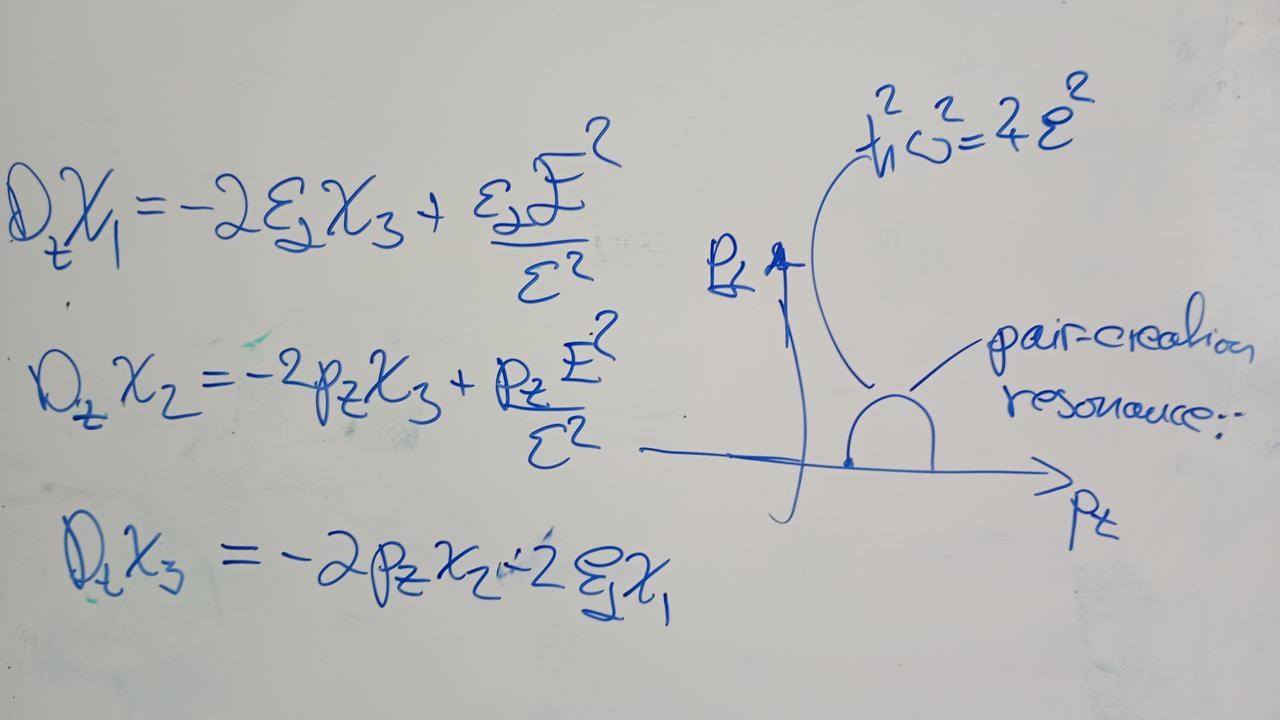 D_t χ_1 = -2 ε_⊥ χ_3 + ε_⊥ E^2 / ε^2
D_t χ_2 = -2 p_z χ_3 + p_z E^2 / ε^2
D_t χ_3 = -2 p_z χ_2 - 2 ε_⊥ χ_1
ħ^2 ω^2 = 4 ε^2
p_⊥
pair-creation
resonance:
p_z